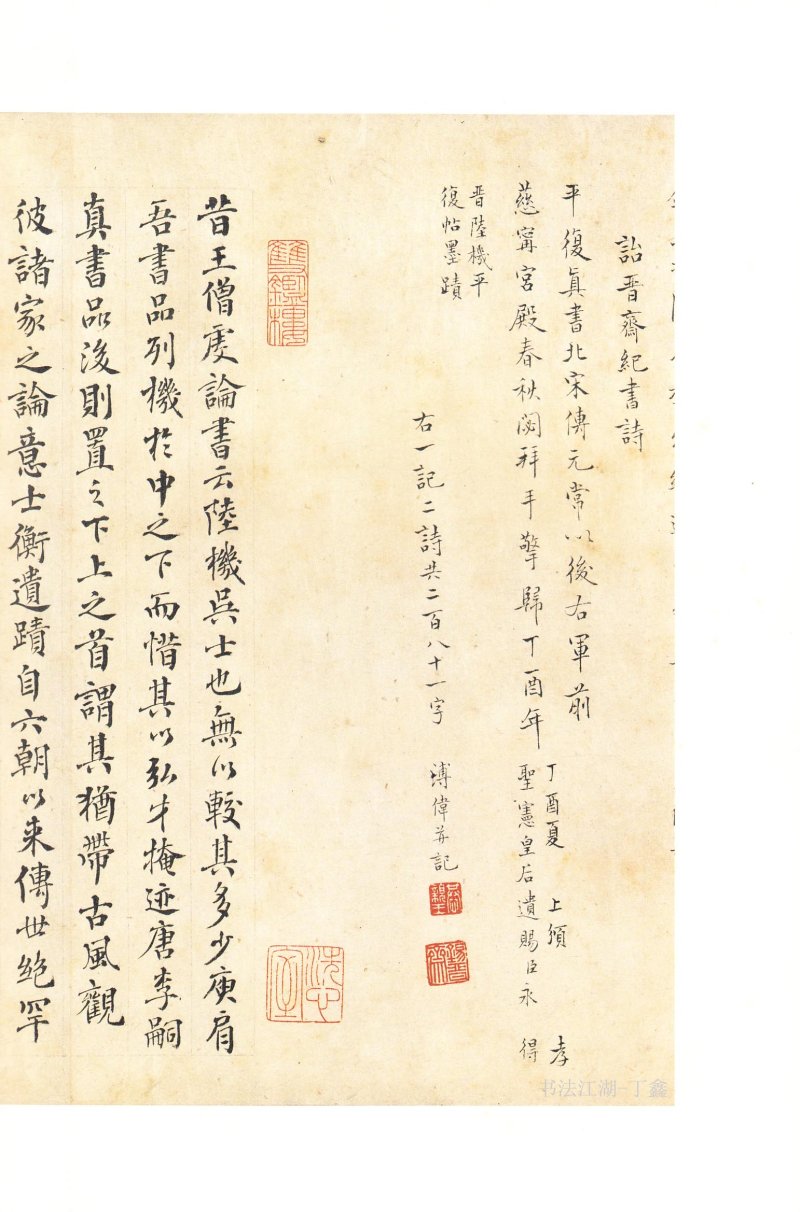 詒晋齋紀書詩
平復真書北宋傳元常以後右軍前
慈寧宮殿春秋閟拜手擎歸丁酉年
丁酉夏 上頒 孝
聖憲皇后遺賜臣永 得
晋陸機平
復帖墨蹟
右一記二詩共二百八十一字 溥偉并記
雙鑑樓
洗心室
昔王僧虔論書云陸機吳士也無以較其多少庾肩
吾書品列機於中之下而惜其以弘才掩迹唐李嗣
真書品後則置之下上之首謂其猶帶古風觀
彼諸家之論意士衡遺蹟自六朝以来傳世絶罕
书法江湖-丁鑫